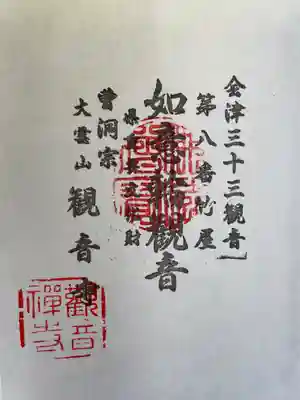 会津三十三観音
第八番竹屋
如意輪観音
県重要文化財
曹洞宗
大雲山
観音寺
觀音
禅寺